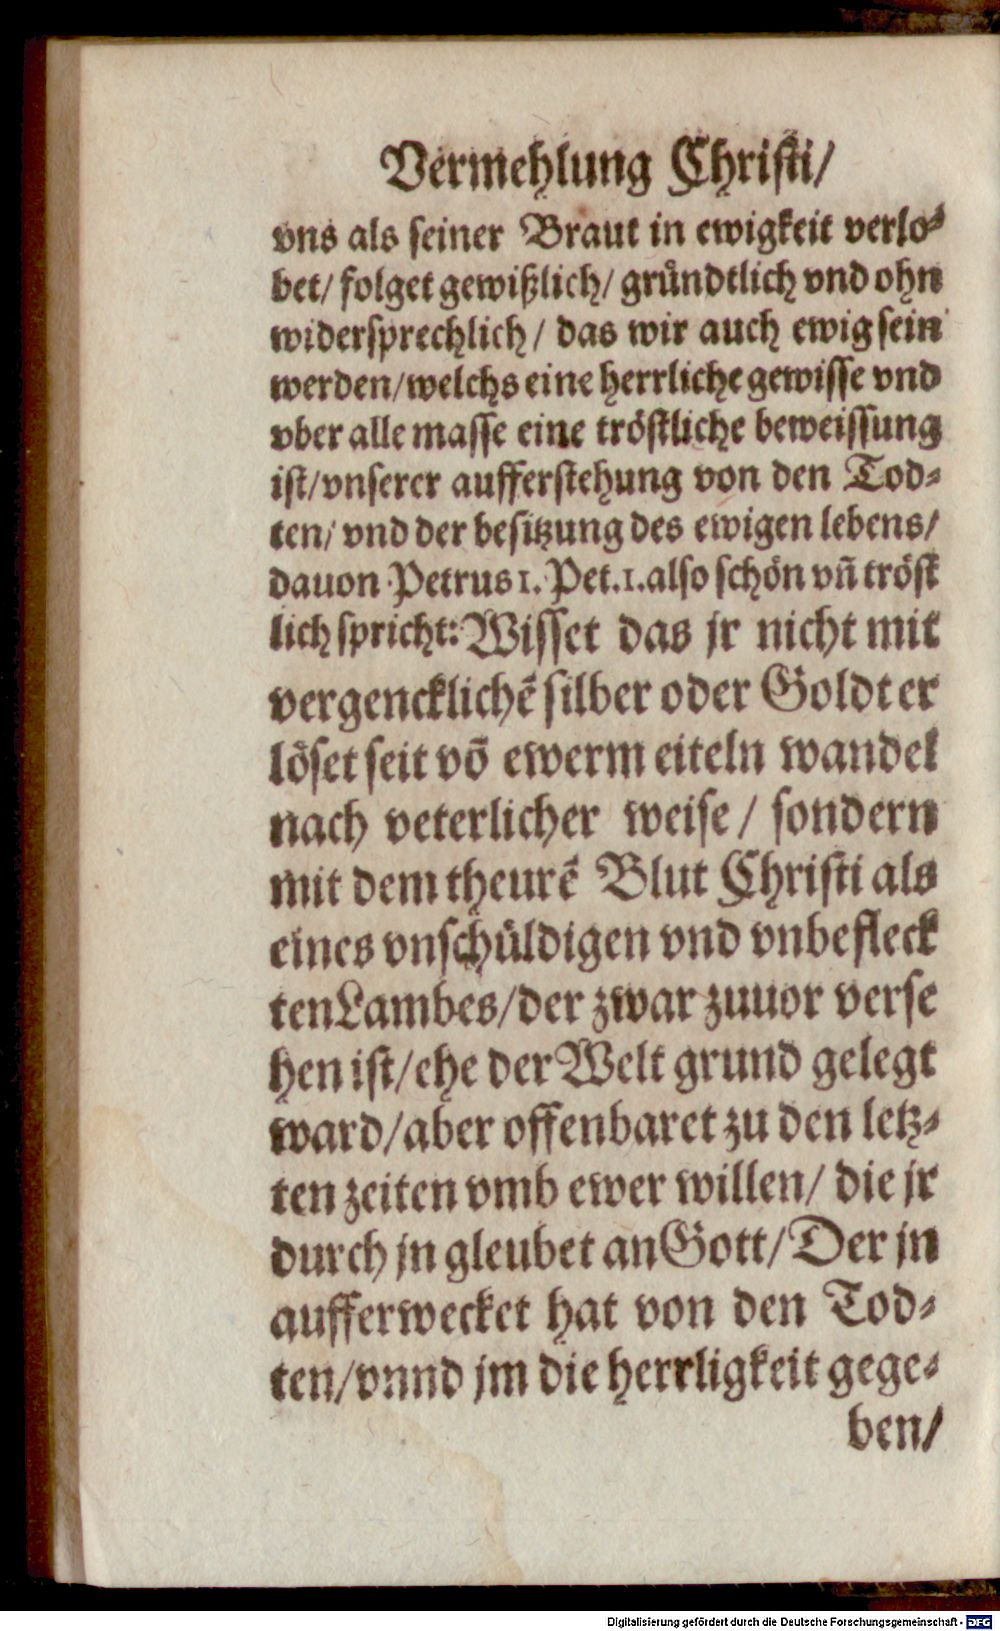 Vermehlung Christi/
vns als seiner Braut in ewigkeit verlo⸗
bet/ folget gewißlich/ gründtlich vnd ohn
widersprechlich/ das wir auch ewig sein
werden/welchs eine herrliche gewisse vnd
vber alle masse eine tröstliche beweissung
ist/vnserer aufferstehung von den Tod⸗
ten/ vnd der besitzung des ewigen lebens/
dauon Petrus 1. Pet.1.also schön vn̄ tröst
lich spricht: Wisset das jr nicht mit
vergencklichē silber oder Goldt er
löset seit vō ewerm eiteln wandel
nach veterlicher weise/ sondern
mit dem theurē Blut Christi als
eines vnschüldigen vnd vnbefleck
ten Lambes/der zwar zuuor verse
hen ist/ehe der Welt grund gelegt
ward/aber offenbaret zu den letz⸗
ten zeiten vmb ewer willen/ die jr
durch jn gleubet an Gott/Der jn
aufferwecket hat von den Tod⸗
ten/vnnd jm die herrligkeit gege⸗
ben/
Digitalisierung gefördert durch die Deutsche Forschungsgemeinschaft - DFG